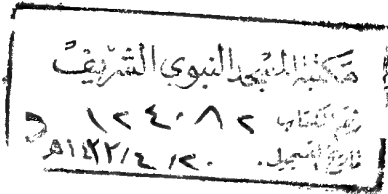 مكتبة المسجد النبوي الشريف
رقم الكتاب ١٢٤٠٨٢
تاريخ التسجيل ١٤٢٢/٤/٢٠هـ